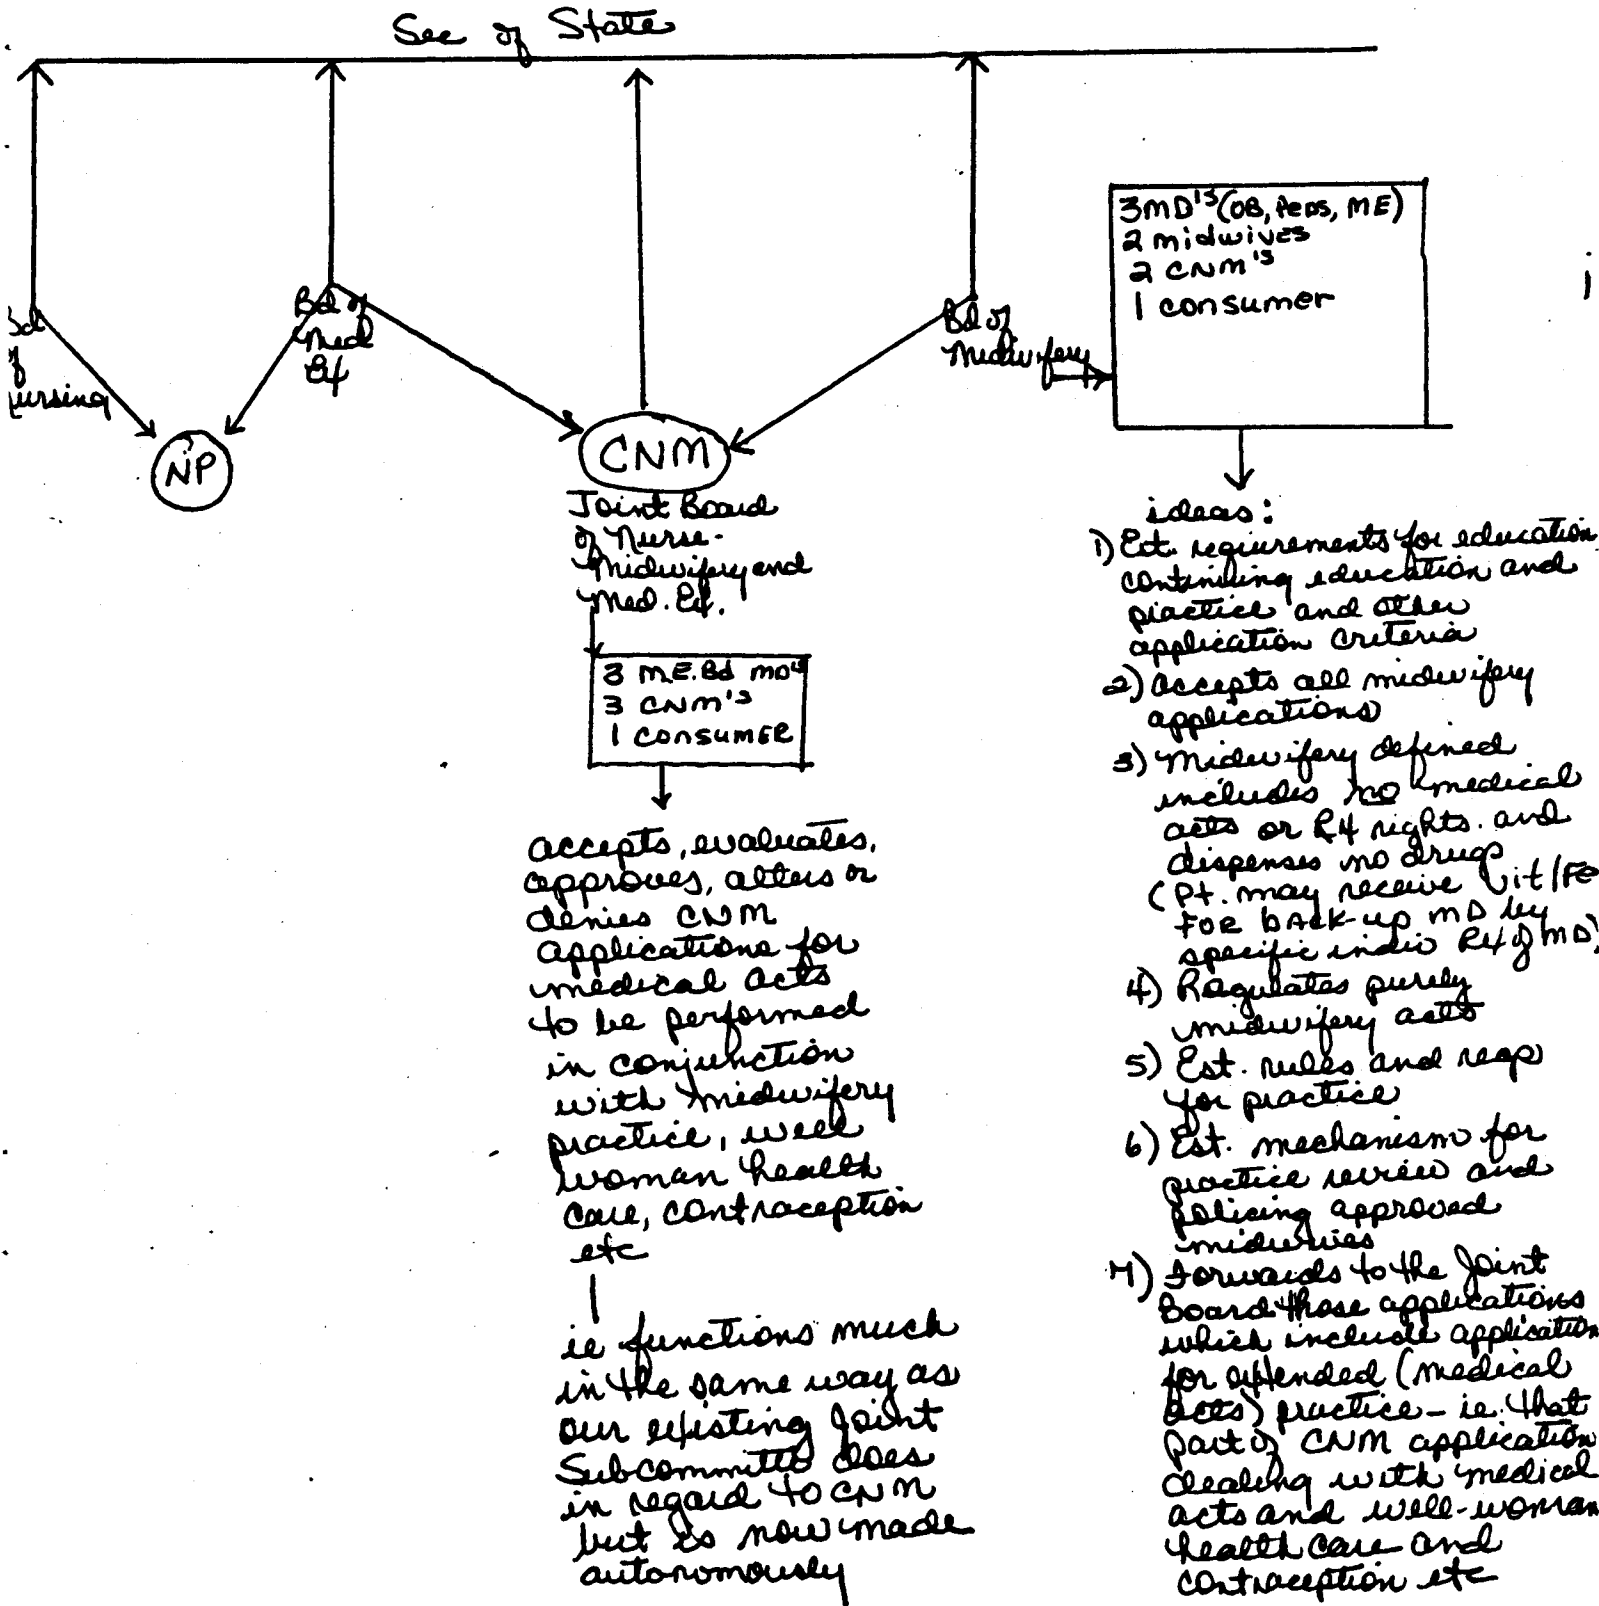 Sec of State
Bd
of
Nursing
NP
Bd of
Med
Ex
CNM
Joint Board
of Nurse-
Midwifery and
Med. Ex.
3 M.E. Bd MD's
3 CNM's
1 consumer
accepts, evaluates,
approves, alters or
denies CNM
applications for
medical acts
to be performed
in conjunction
with midwifery
practice, well
woman health
care, contraception
etc
ie functions much
in the same way as
our existing Joint
Subcommitte does
in regard to CNM
but is now made
autonomously
Bd of
Midwifery
3 MD's (OB, Peds, ME)
2 midwives
2 CNM's
1 consumer
ideas:
1) Est. requirements for education
continuing education and
practice and other
application criteria
2) accepts all midwifery
applications
3) Midwifery defined
includes no medical
acts or RX rights. and
dispenses no drugs
(Pt. may receive Vit/FE
FOR back-up MD by
specific indiv RX of MD)
4) Regulates purely
midwifery acts
5) Est. rules and regs
for practice
6) Est. mechanism for
practice review and
policing approved
midwives
7) Forwards to the Joint
Board those applications
which include application
for extended (medical
acts) practice - ie. that
part of CNM application
dealing with medical
acts and well-woman
health care and
contraception etc